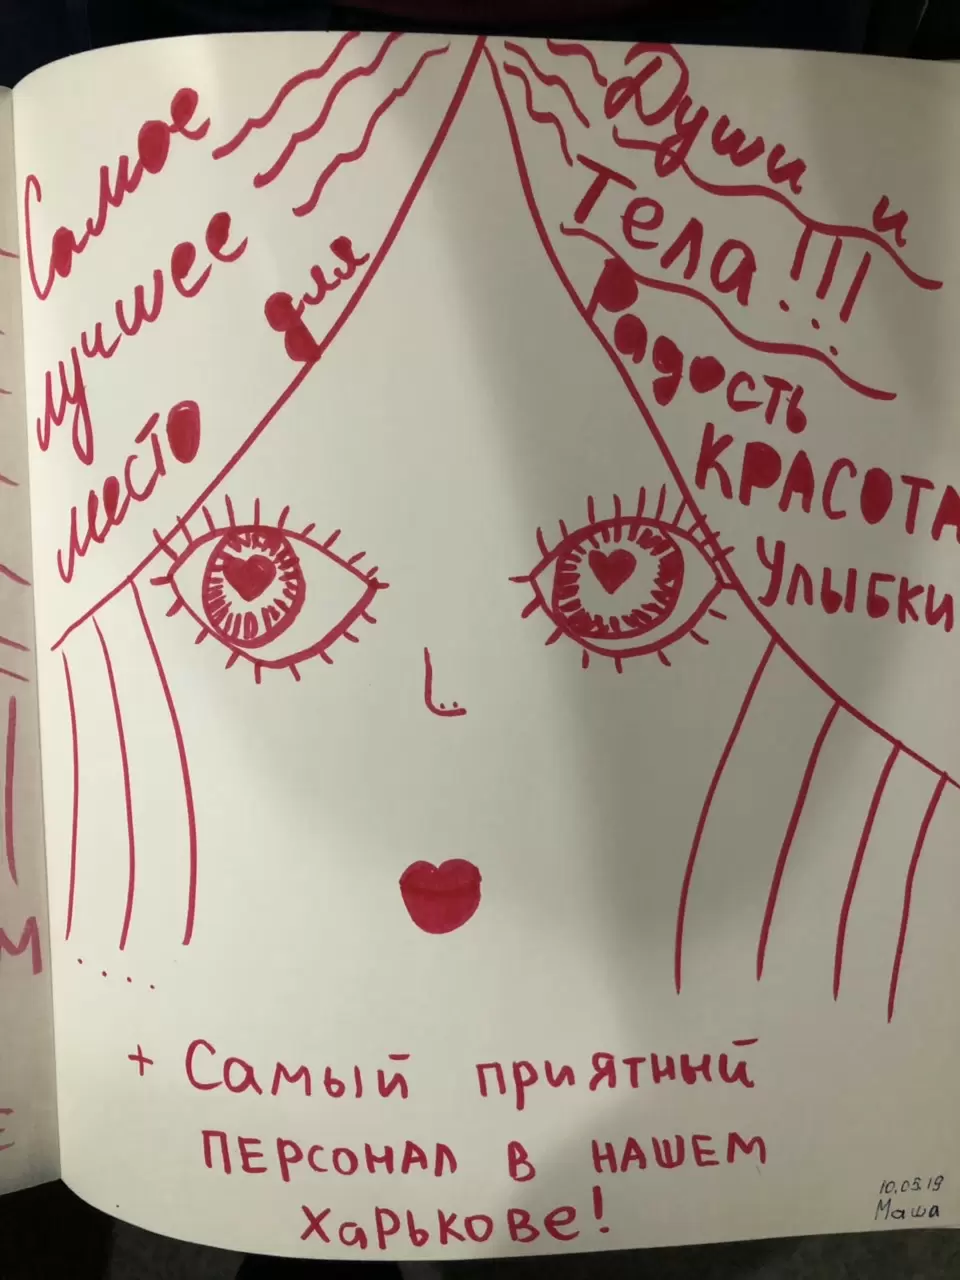 Самое
лучшее
место
для
Души и
Тела!!!
Радость
КРАСОТА
УЛЫБКИ
+ Самый приятный
ПЕРСОНАЛ В НАШЕМ
ХАРЬКОВЕ!
10.05.19
Маша
М
Е